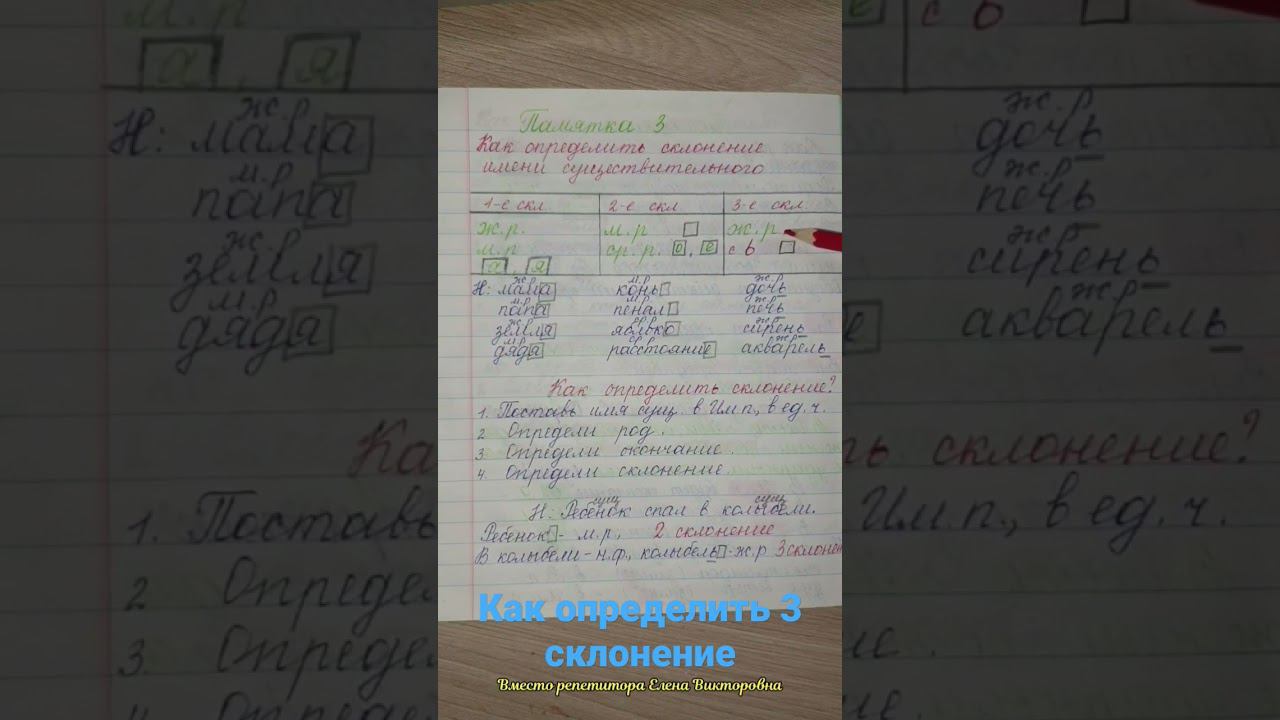 Памятка 3
Как определить склонение
имени существительного
1-е скл. 2-е скл 3-е скл.
ж.р. м.р ж.р
м.р ср.р. о, е с ь
а, я
ж.р м.р ж.р
Н: мама конь дочь
м.р м.р ж.р
папа пенал печь
ж.р ср.р ж.р
земля яблоко сирень
м.р ср.р ж.р
дядя расстояние акварель
Как определить склонение?
1. Поставь имя сущ. в Им.п., в ед. ч.
2 Определи род.
3 Определи окончание.
4. Определи склонение.
сущ сущ
Н: Ребёнок спал в колыбели.
Ребёнок - м.р, 2 склонение
В колыбели - н.ф., колыбель - ж.р 3 склонен
Как определить 3
склонение
Вместо репетитора Елена Викторовна